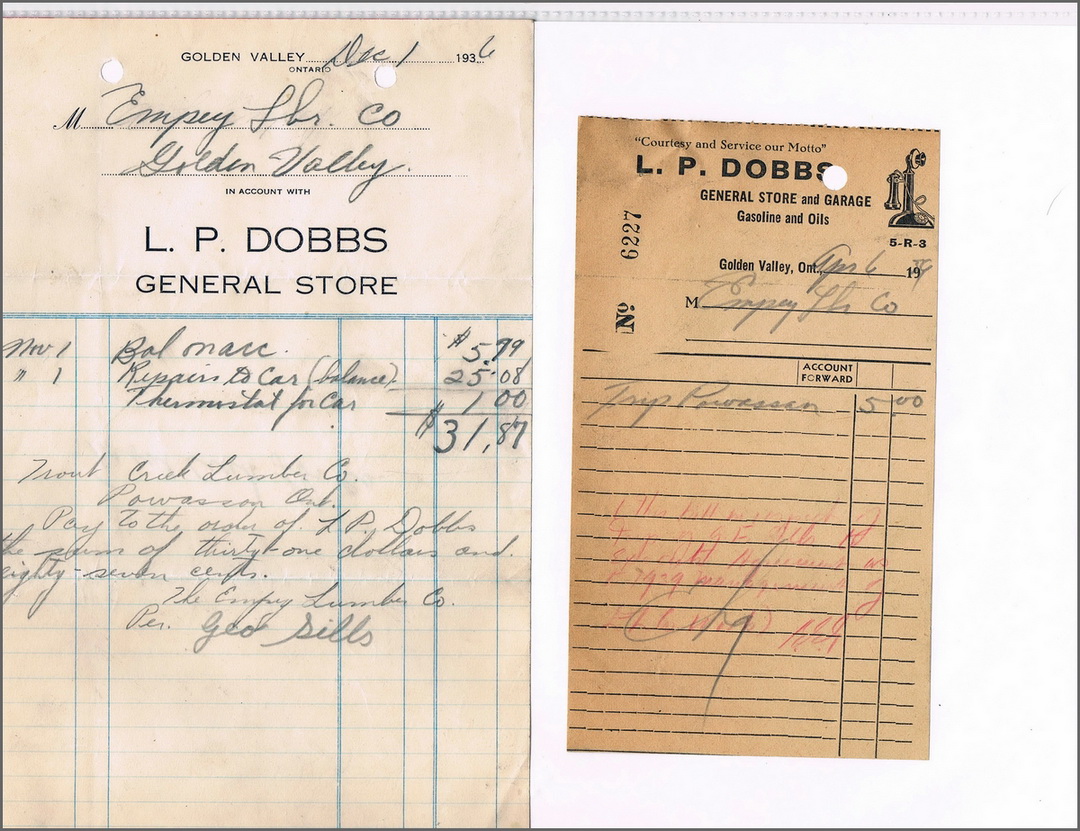 GOLDEN VALLEY Dec 1 1936
ONTARIO
M Empey Lbr. Co
Golden Valley.
IN ACCOUNT WITH
L. P. DOBBS
GENERAL STORE
Nov 1 Bal on acc. $5.79
" 1 Repairs to Car (balance). 25.08
Thermostat for Car 1 00
$31,87
Trout Creek Lumber Co.
Powassan Ont.
Pay to the order of L. P. Dobbs
the sum of thirty-one dollars and
eighty-seven cents.
The Empey Lumber Co.
Per. Geo Sills
"Courtesy and Service our Motto"
L. P. DOBBS
GENERAL STORE and GARAGE
Gasoline and Oils
5-R-3
No 6227
Golden Valley, Ont., Apr 6 19
M Empey Lbr Co
ACCOUNT
FORWARD
Trip Powassan 5 00